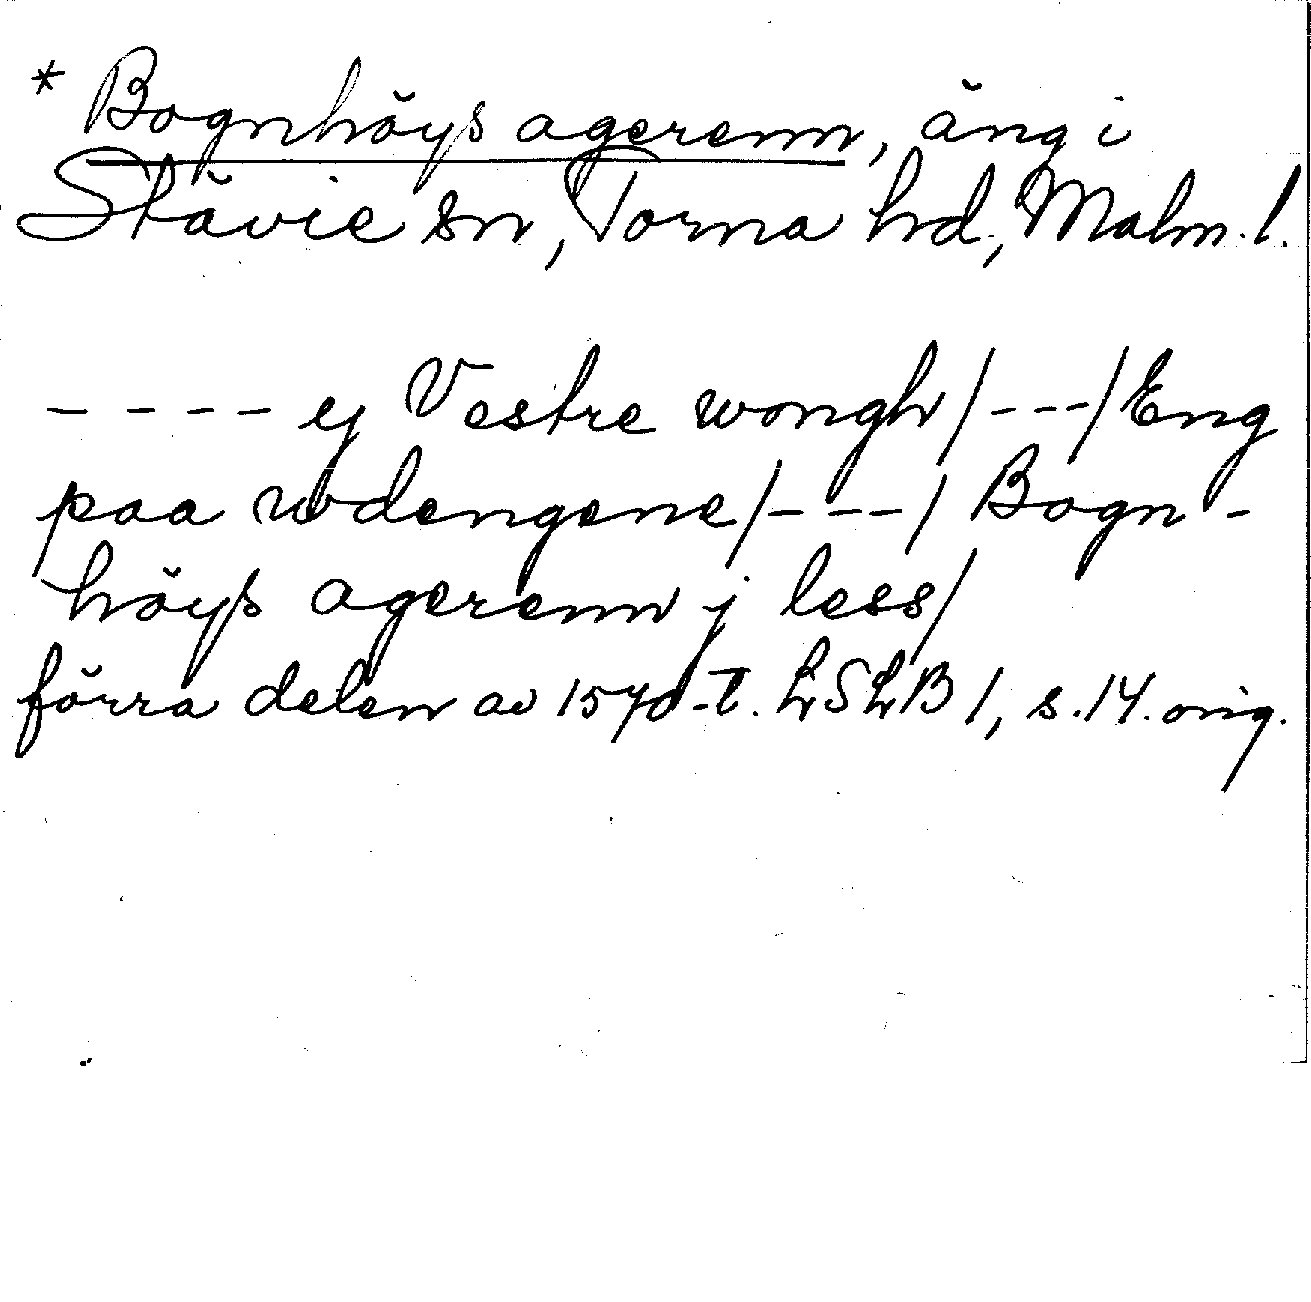 * Bognhöys agerenn, äng i
Stävie sn, Torna hd, Malm. l.
---- ej Vestre wongh/---/Eng
paa wdengene/---/ Bogn-
höys agerenn j less/
förra delen av 1570-t. LSLB 1, s. 14. orig.